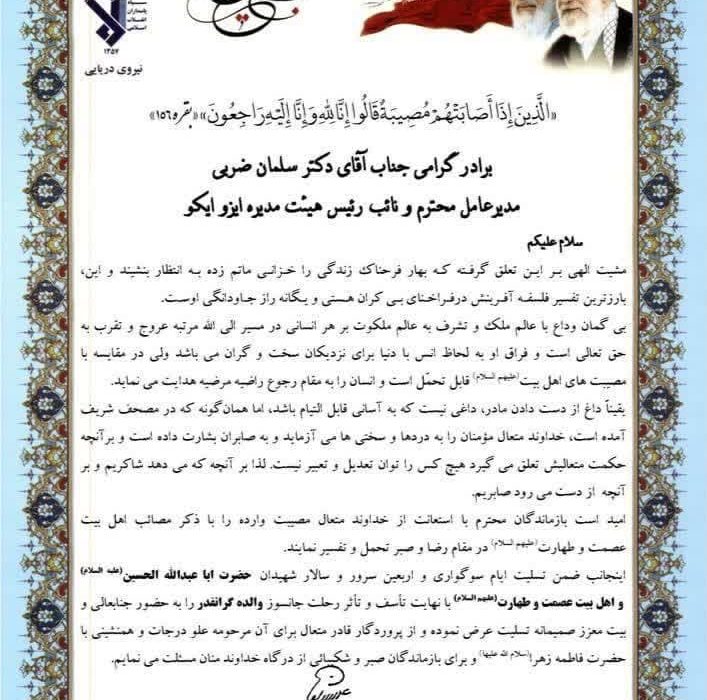 سپاه
پاسداران
انقلاب
اسلامی
۱۳۵۷
نیروی دریایی
«الَّذِینَ إِذَا أَصَابَتْهُمْ مُصِیبَةٌ قَالُوا إِنَّا لِلَّهِ وَإِنَّا إِلَیْهِ رَاجِعُونَ» «بقره ۱۵۶»
برادر گرامی جناب آقای دکتر سلمان ضربی
مدیرعامل محترم و نائب رئیس هیئت مدیره ایزو ایکو
سلام علیکم
مشیت الهی بر این تعلق گرفته که بهار فرحناک زندگی را خزانی ماتم زده به انتظار بنشیند و این،
بارزترین تفسیر فلسفه آفرینش درفراخنای بی کران هستی و یگانه راز جاودانگی اوست.
بی گمان وداع با عالم ملک و تشرف به عالم ملکوت بر هر انسانی در مسیر الی الله مرتبه عروج و تقرب به
حق تعالی است و فراق او به لحاظ انس با دنیا برای نزدیکان سخت و گران می باشد ولی در مقایسه با
مصیبت های اهل بیت(علیهم السلام) قابل تحمّل است و انسان را به مقام رجوع راضیه مرضیه هدایت می نماید.
یقیناً داغ از دست دادن مادر، داغی نیست که به آسانی قابل التیام باشد، اما همان‌گونه که در مصحف شریف
آمده است، خداوند متعال مؤمنان را به دردها و سختی ها می آزماید و به صابران بشارت داده است و برآنچه
حکمت متعالیش تعلق می گیرد هیچ کس را توان تعدیل و تعبیر نیست. لذا بر آنچه که می دهد شاکریم و بر
آنچه از دست می رود صابریم.
امید است بازماندگان محترم با استعانت از خداوند متعال مصیبت وارده را با ذکر مصائب اهل بیت
عصمت و طهارت(علیهم السلام) در مقام رضا و صبر تحمل و تفسیر نمایند.
اینجانب ضمن تسلیت ایام سوگواری و اربعین سرور و سالار شهیدان حضرت ابا عبدالله الحسین(علیه السلام)
و اهل بیت عصمت و طهارت(علیهم السلام) با نهایت تأسف و تأثر رحلت جانسوز والده گرانقدر را به حضور جنابعالی و
بیت معزز صمیمانه تسلیت عرض نموده و از پروردگار قادر متعال برای آن مرحومه علو درجات و همنشینی با
حضرت فاطمه زهرا(سلام الله علیها) و برای بازماندگان صبر و شکیبائی از درگاه خداوند منان مسئلت می نمایم.